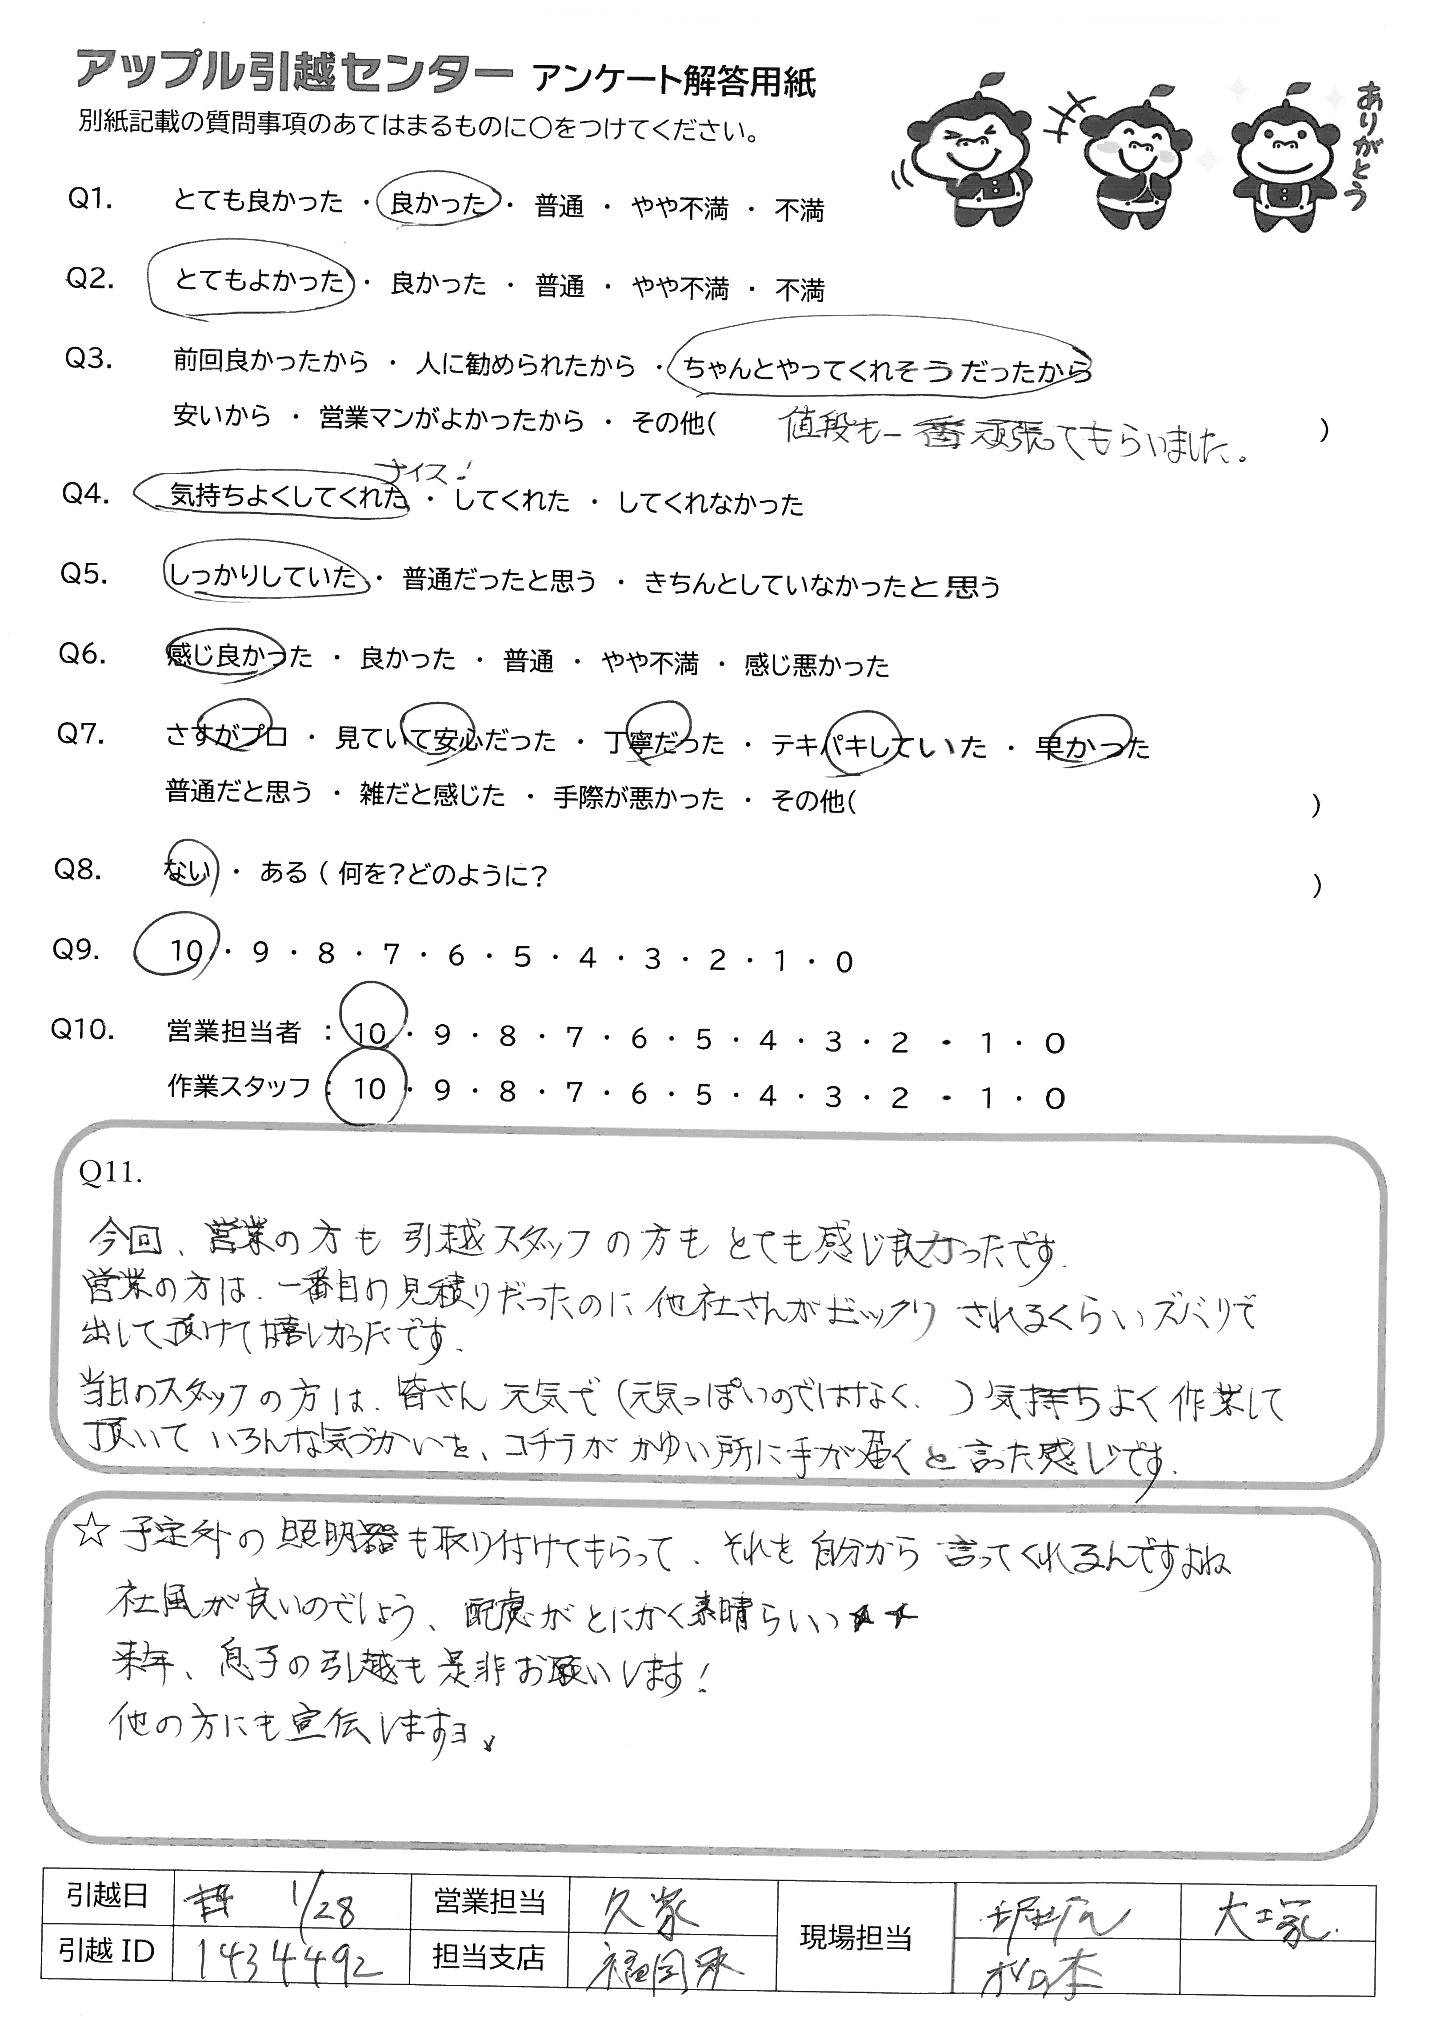 アップル引越センター アンケート解答用紙
別紙記載の質問事項のあてはまるものに○をつけてください。
ありがとう
Q1. とても良かった ・ 良かった ・ 普通 ・ やや不満 ・ 不満
Q2. とてもよかった ・ 良かった ・ 普通 ・ やや不満 ・ 不満
Q3. 前回良かったから ・ 人に勧められたから ・ ちゃんとやってくれそうだったから
安いから ・ 営業マンがよかったから ・ その他( 値段も一番頑張ってもらいました。 )
ナイス!
Q4. 気持ちよくしてくれた ・ してくれた ・ してくれなかった
Q5. しっかりしていた ・ 普通だったと思う ・ きちんとしていなかったと思う
Q6. 感じ良かった ・ 良かった ・ 普通 ・ やや不満 ・ 感じ悪かった
Q7. さすがプロ ・ 見ていて安心だった ・ 丁寧だった ・ テキパキしていた ・ 早かった
普通だと思う ・ 雑だと感じた ・ 手際が悪かった ・ その他( )
Q8. ない ・ ある ( 何を?どのように? )
Q9. 10 ・ 9 ・ 8 ・ 7 ・ 6 ・ 5 ・ 4 ・ 3 ・ 2 ・ 1 ・ 0
Q10. 営業担当者 : 10 ・ 9 ・ 8 ・ 7 ・ 6 ・ 5 ・ 4 ・ 3 ・ 2 ・ 1 ・ 0
作業スタッフ : 10 ・ 9 ・ 8 ・ 7 ・ 6 ・ 5 ・ 4 ・ 3 ・ 2 ・ 1 ・ 0
Q11.
今回、営業の方も 引越スタッフの方も とても感じ良かったです.
営業の方は、一番目の見積りだったのに 他社さんがビックリ されるくらいズバリで
出して頂けて嬉しかったです.
当日のスタッフの方は、皆さん 元気で (元気っぽいのではなく、) 気持ちよく 作業して
頂いて いろんな気づかいを、コチラが かゆい所に手が届くと言った感じです.
☆予定外の照明器も取り付けてもらって、それを自分から 言ってくれるんですよね
社風が良いのでしょう、配慮がとにかく素晴らしい★★
来年、息子の引越も是非お願いします!
他の方にも宣伝しますヨ、
引越日 1/28 営業担当 久家 現場担当 大塚
引越 ID 1434492 担当支店 福岡東 松の木